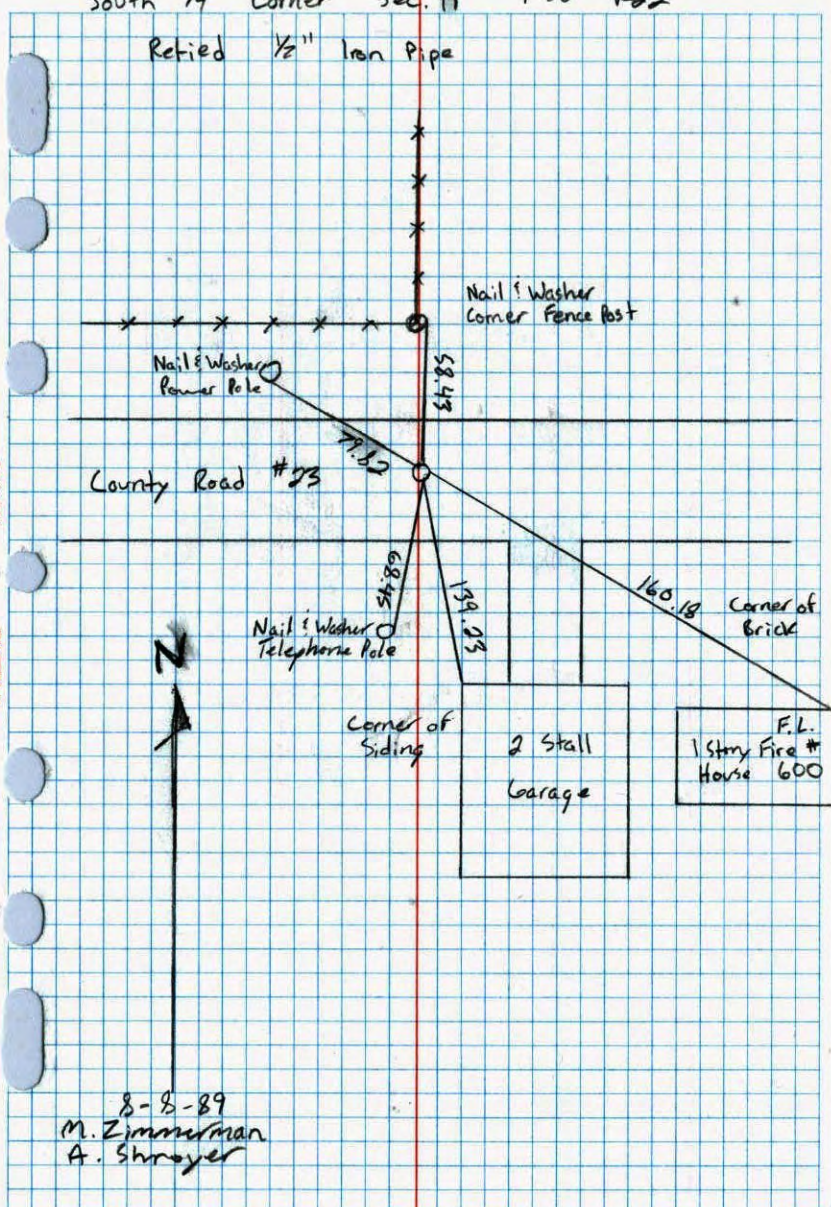 South 1/4 Corner Sec. 11
Retied 1/2" Iron Pipe
Nail & Washer
Corner Fence Post
Nail & Washer
Power Pole
58.43
79.82
County Road #23
68.45
139.23
160.18
Corner of
Brick
Nail & Washer
Telephone Pole
N
Corner of
Siding
2 Stall
Garage
F.L.
1 Story Fire #
House 600
8-8-89
M. Zimmerman
A. Shroyer